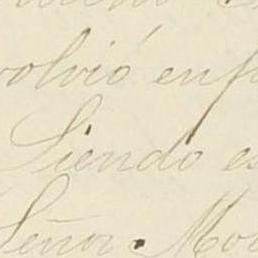 volvió enf
Siendo es
Señor Mo